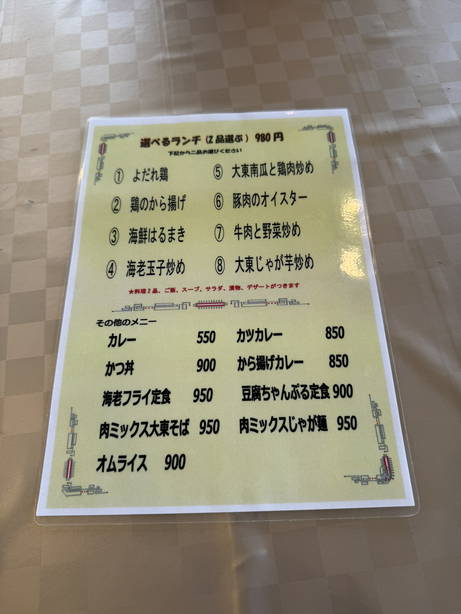 選べるランチ（2品選ぶ）980円
下記から二品お選びください
① よだれ鶏
② 鶏のから揚げ
③ 海鮮はるまき
④ 海老玉子炒め
⑤ 大東南瓜と鶏肉炒め
⑥ 豚肉のオイスター
⑦ 牛肉と野菜炒め
⑧ 大東じゃが芋炒め
★料理2品、ご飯、スープ、サラダ、漬物、デザートがつきます
その他のメニー
カレー 550 カツカレー 850
かつ丼 900 から揚げカレー 850
海老フライ定食 950 豆腐ちゃんぷる定食 900
肉ミックス大東そば 950 肉ミックスじゃが麺 950
オムライス 900